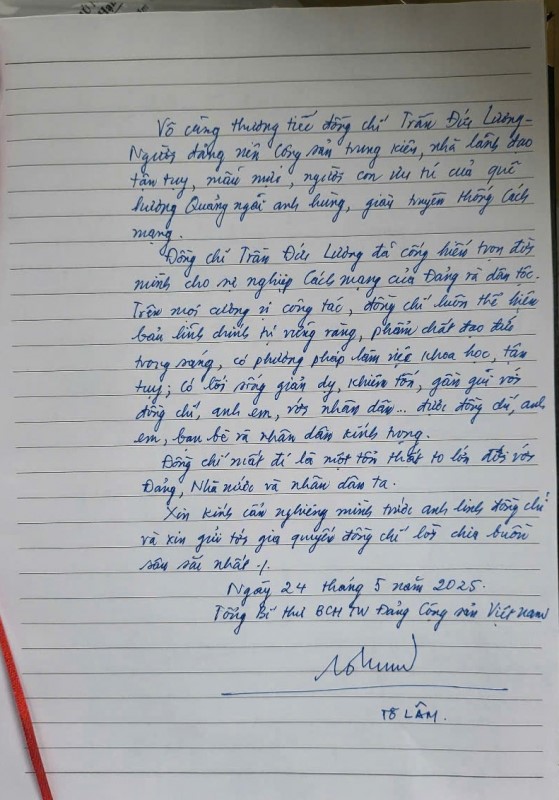 Vô cùng thương tiếc đồng chí Trần Đức Lương-
Người đảng viên Cộng sản trung kiên, nhà lãnh đạo
tận tụy, mẫu mực, người con ưu tú của quê
hương Quảng Ngãi anh hùng, giàu truyền thống Cách
mạng.
Đồng chí Trần Đức Lương đã cống hiến trọn đời
mình cho sự nghiệp Cách mạng của Đảng và dân tộc.
Trên mọi cương vị công tác, đồng chí luôn thể hiện
bản lĩnh chính trị vững vàng, phẩm chất đạo đức
trong sáng, có phương pháp làm việc khoa học, tận
tụy; có lối sống giản dị, khiêm tốn, gần gũi với
đồng chí, anh em, với nhân dân... được đồng chí, anh
em, bạn bè và nhân dân kính trọng.
Đồng chí mất đi là một tổn thất to lớn đối với
Đảng, Nhà nước và nhân dân ta.
Xin kính cẩn nghiêng mình trước anh linh đồng chí
và xin gửi tới gia quyến đồng chí lời chia buồn
sâu sắc nhất ./.
Ngày 24 tháng 5 năm 2025.
Tổng Bí thư BCH TW Đảng Cộng sản Việt nam
TÔ LÂM.